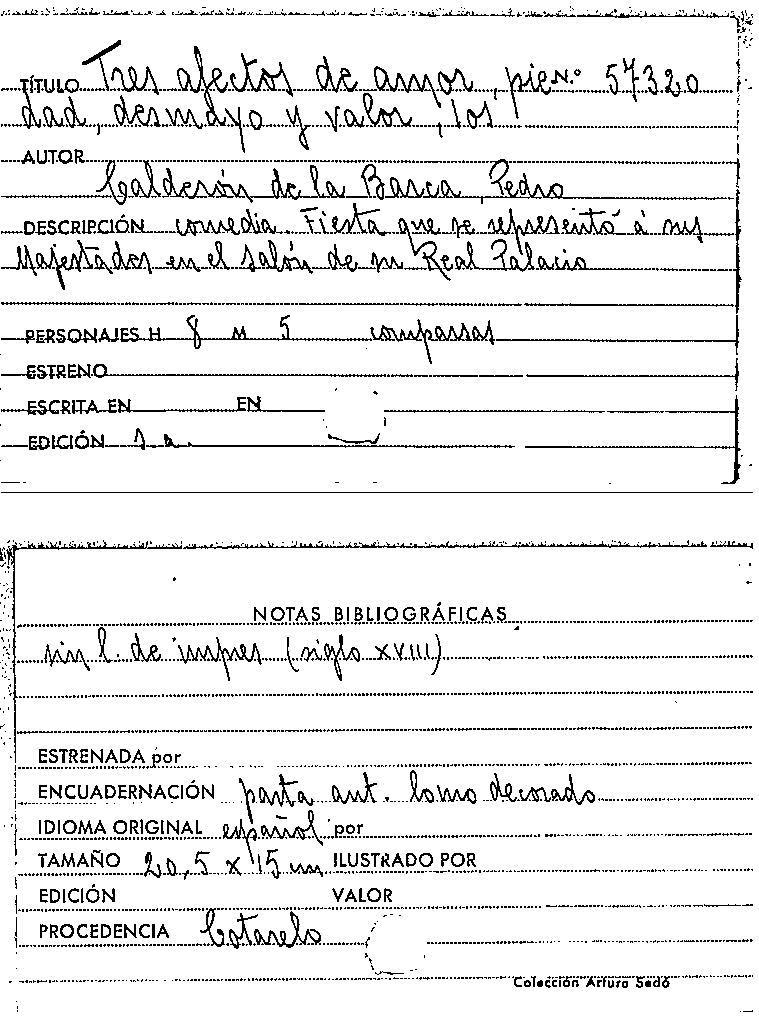 TÍTULO Tres afectos de amor, pie N.º 57320
dad, desmayo y valor, los
AUTOR
Calderón de la Barca, Pedro
DESCRIPCIÓN comedia. Fiesta que se representó á sus
Majestades en el salón de su Real Palacio
PERSONAJES H 8 M 5 comparsas
ESTRENO
ESCRITA EN EN
EDICIÓN s.a.
NOTAS BIBLIOGRÁFICAS
sin l. de impres (siglo XVIII)
ESTRENADA por
ENCUADERNACIÓN pasta ant. lomo decorado
IDIOMA ORIGINAL español por
TAMAÑO 20,5 x 15 cm ILUSTRADO POR
EDICIÓN VALOR
PROCEDENCIA Cotarelo
Colección Arturo Sedó